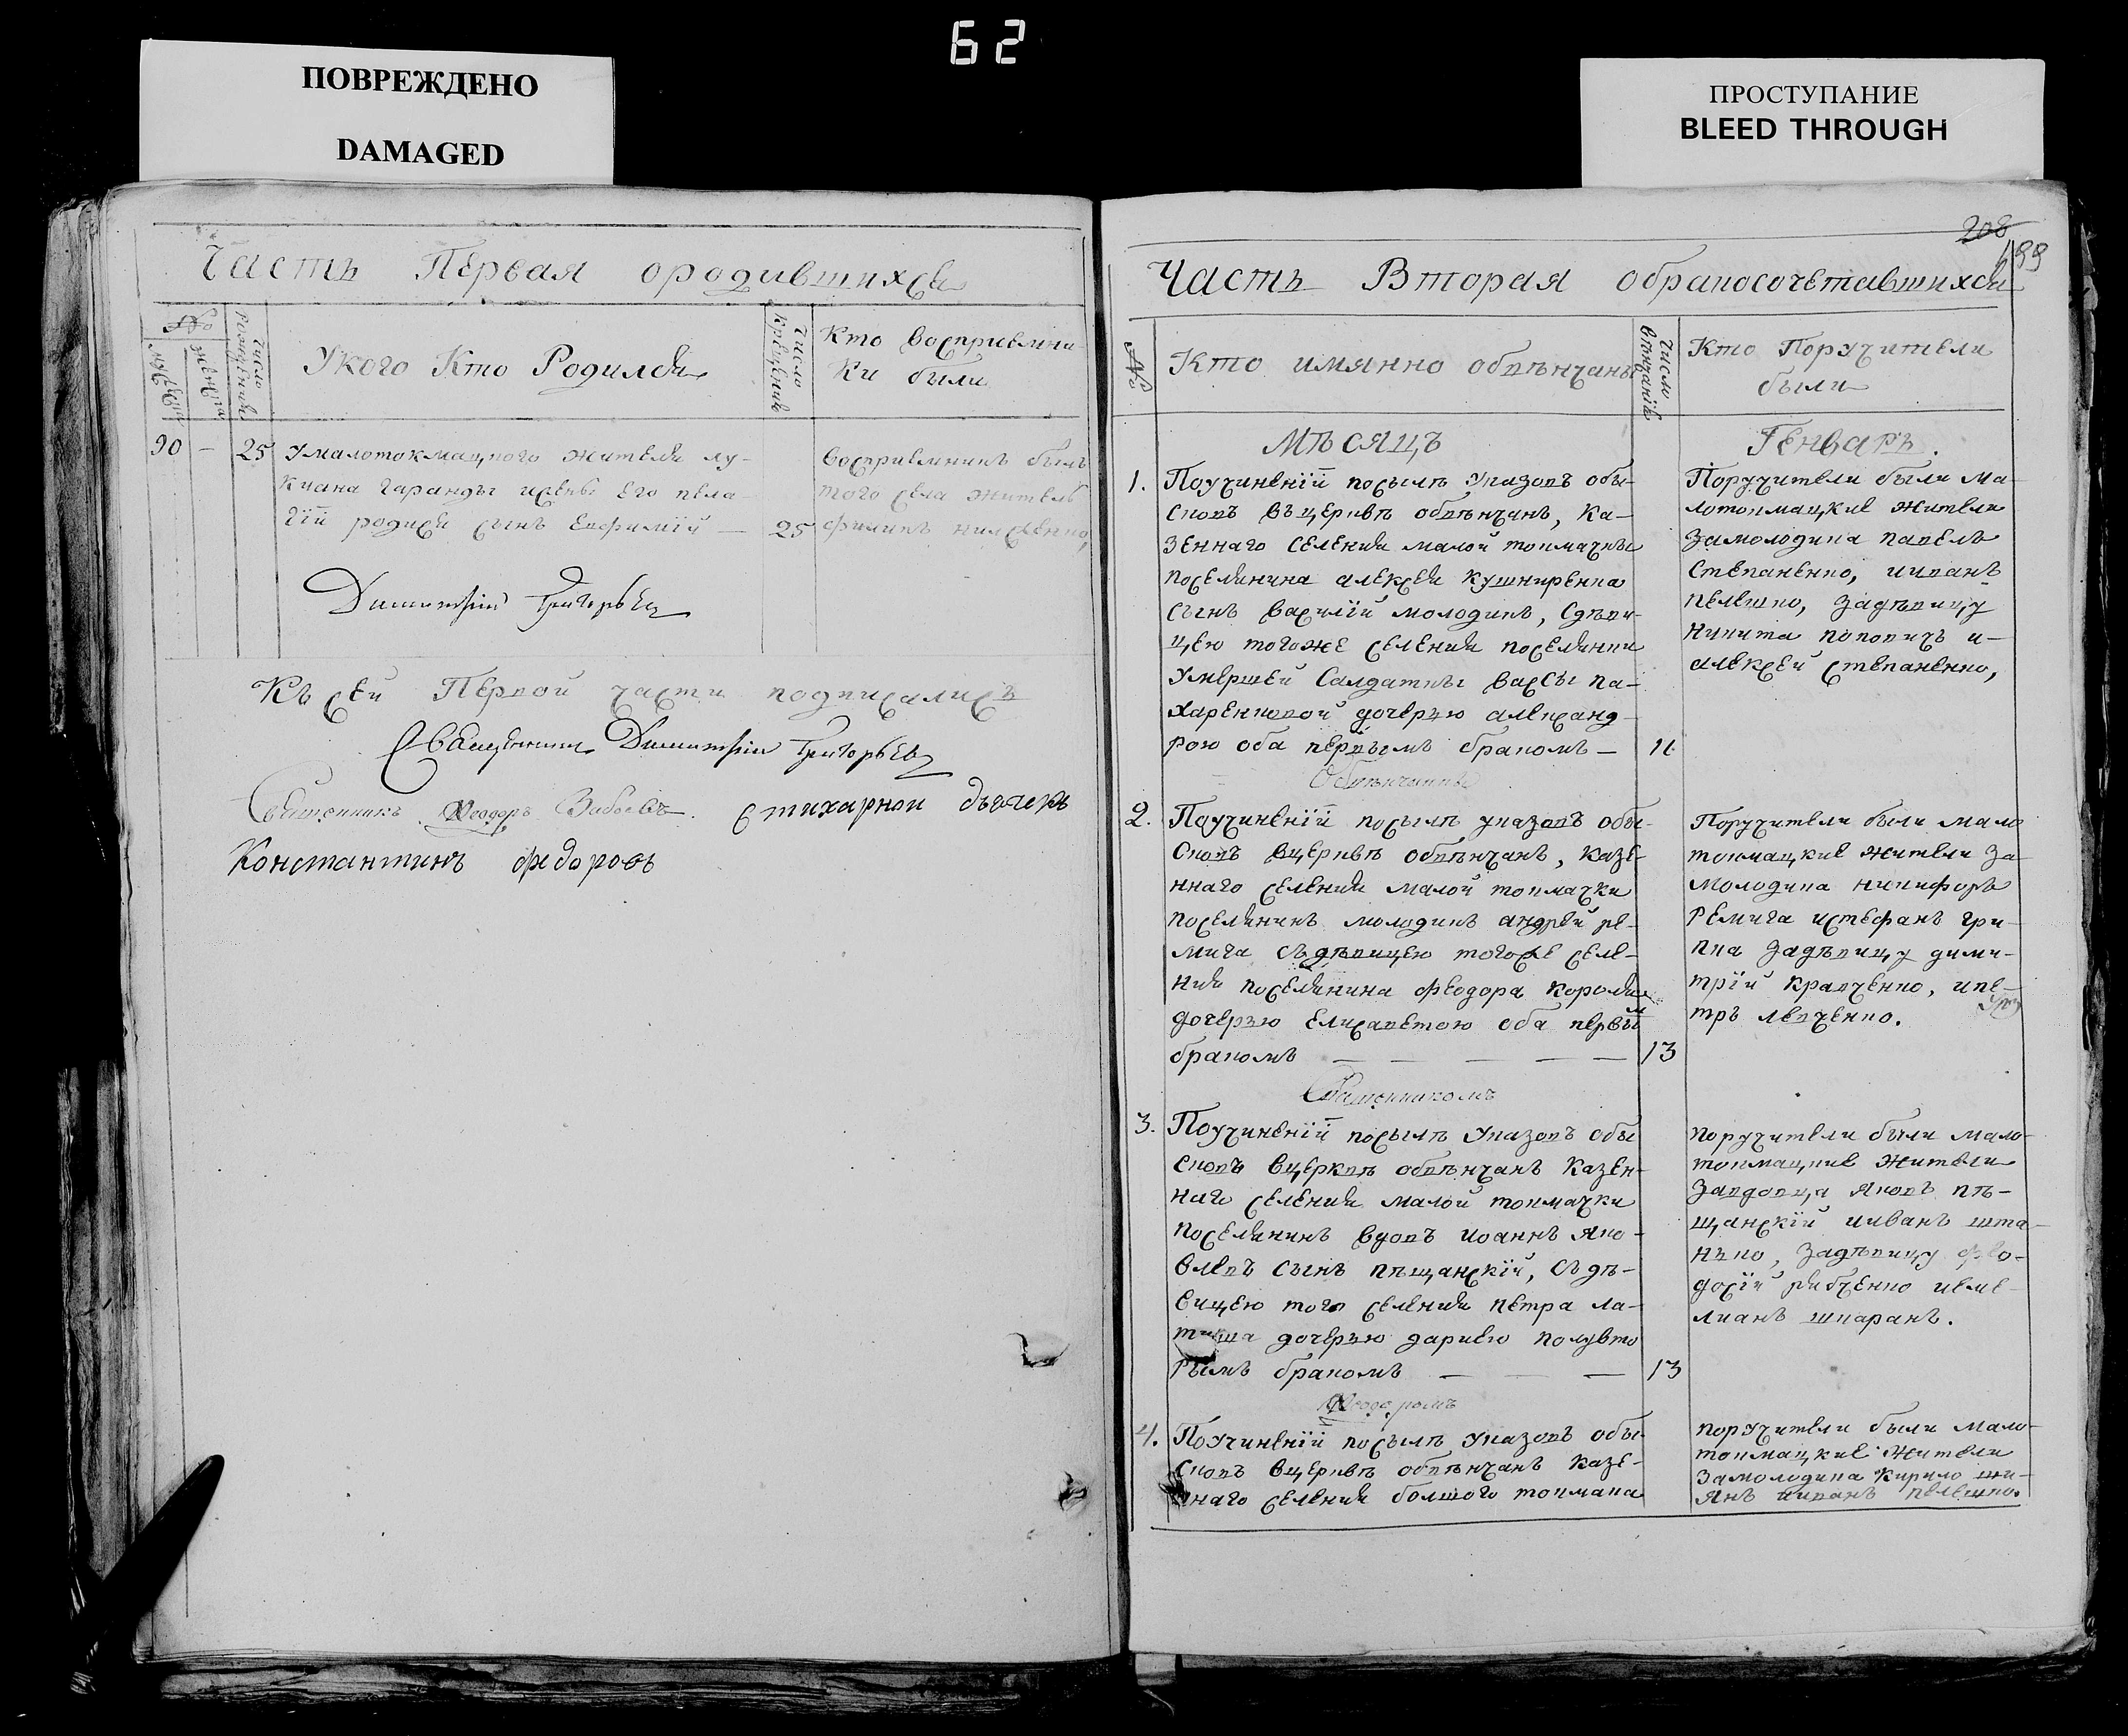 62
ПОВРЕЖДЕНО
DAMAGED
ПРОСТУПАНИЕ
BLEED THROUGH
Часть Первая ородившихся
№
мужеска
женска
Число рожденія
Укого Кто Родился
Число крещенія
Кто Восприемни-
ки были
90 – 25 Умалотокмацкого жителя лу-
киана гаранды ижены его пела-
гїй родися сынъ Евфимїй — 25
Восприемникъ былъ
того села житель
филипъ
Димитрій Григорьев
Къ сей Первой части подписались
Священник Димитрій Григорьев
Священникъ Феодоръ стихарной дьячекъ
Константинъ федоровъ
208
199
Часть Вторая обракосочетавшихся
№
Кто имянно обвѣнчаны
Число вѣнчанія
Кто Поручители
были
Мѣсяцъ Генварь.
1. Поучиненїй посылѣ Указовъ обы-
сковъ въцерквѣ обвѣнчанъ, Ка-
зеннаго селения малой токмачки
поселянина алексея кушниренка
сынъ василїй молодикъ, Сдѣви-
цею тогоже селения поселянки
умершей Салдатки вассы па-
харенковой дочерью александ-
рою оба первымъ бракомъ — 11
Поручители были Ма-
лотокмацкие жители
Замолодика павелъ
Степаненко, ииванъ
пелешко, задѣвицу
Никита поповичъ и-
алексей степаненко,
Обвѣнчанны
2. Поучиненїй посылѣ указовъ обы-
сковъ вцерквѣ обвѣнчанъ, казе-
ннаго селения малой токмачки
поселянинъ молодикъ андрей ре-
мига съдѣвицею тогоже селе-
ния поселянина феодора короля
дочерью елисаветою оба первым
бракомъ — — — — — 13
Поручители были мало
токмацкие жители за-
молодика никифоръ
Ремига истефанъ гри-
пка задѣвицу дими-
трїй кравченко, ипе-
тръ левченко.
Священникомъ
3. Поучиненїй посылѣ Указовъ обы
сковъ вцерквѣ обвѣнчанъ казен-
наго селения малой токмачки
поселянинъ вдовъ иоаннъ яко-
влевъ сынъ пѣщанскїй, съдѣ-
вицею того селения петра ла-
тиша дочерью дариею полувто
рымъ бракомъ — — — 13
поручители были мало-
токмацкие жители
завдовца яковъ пѣ-
щанскїй ииванъ шта-
нько, задѣвицу фео-
досїй рибченко иеме-
лианъ шпаранъ.
Феодоромъ
4. Поучиненїй посылѣ указовъ обы-
сковъ вцерквѣ обвѣнчанъ казе-
ннаго селения болшого токмака
поручители были мало-
токмацкие жители
Замолодика кирило ши-
янъ ииванъ пелешко.